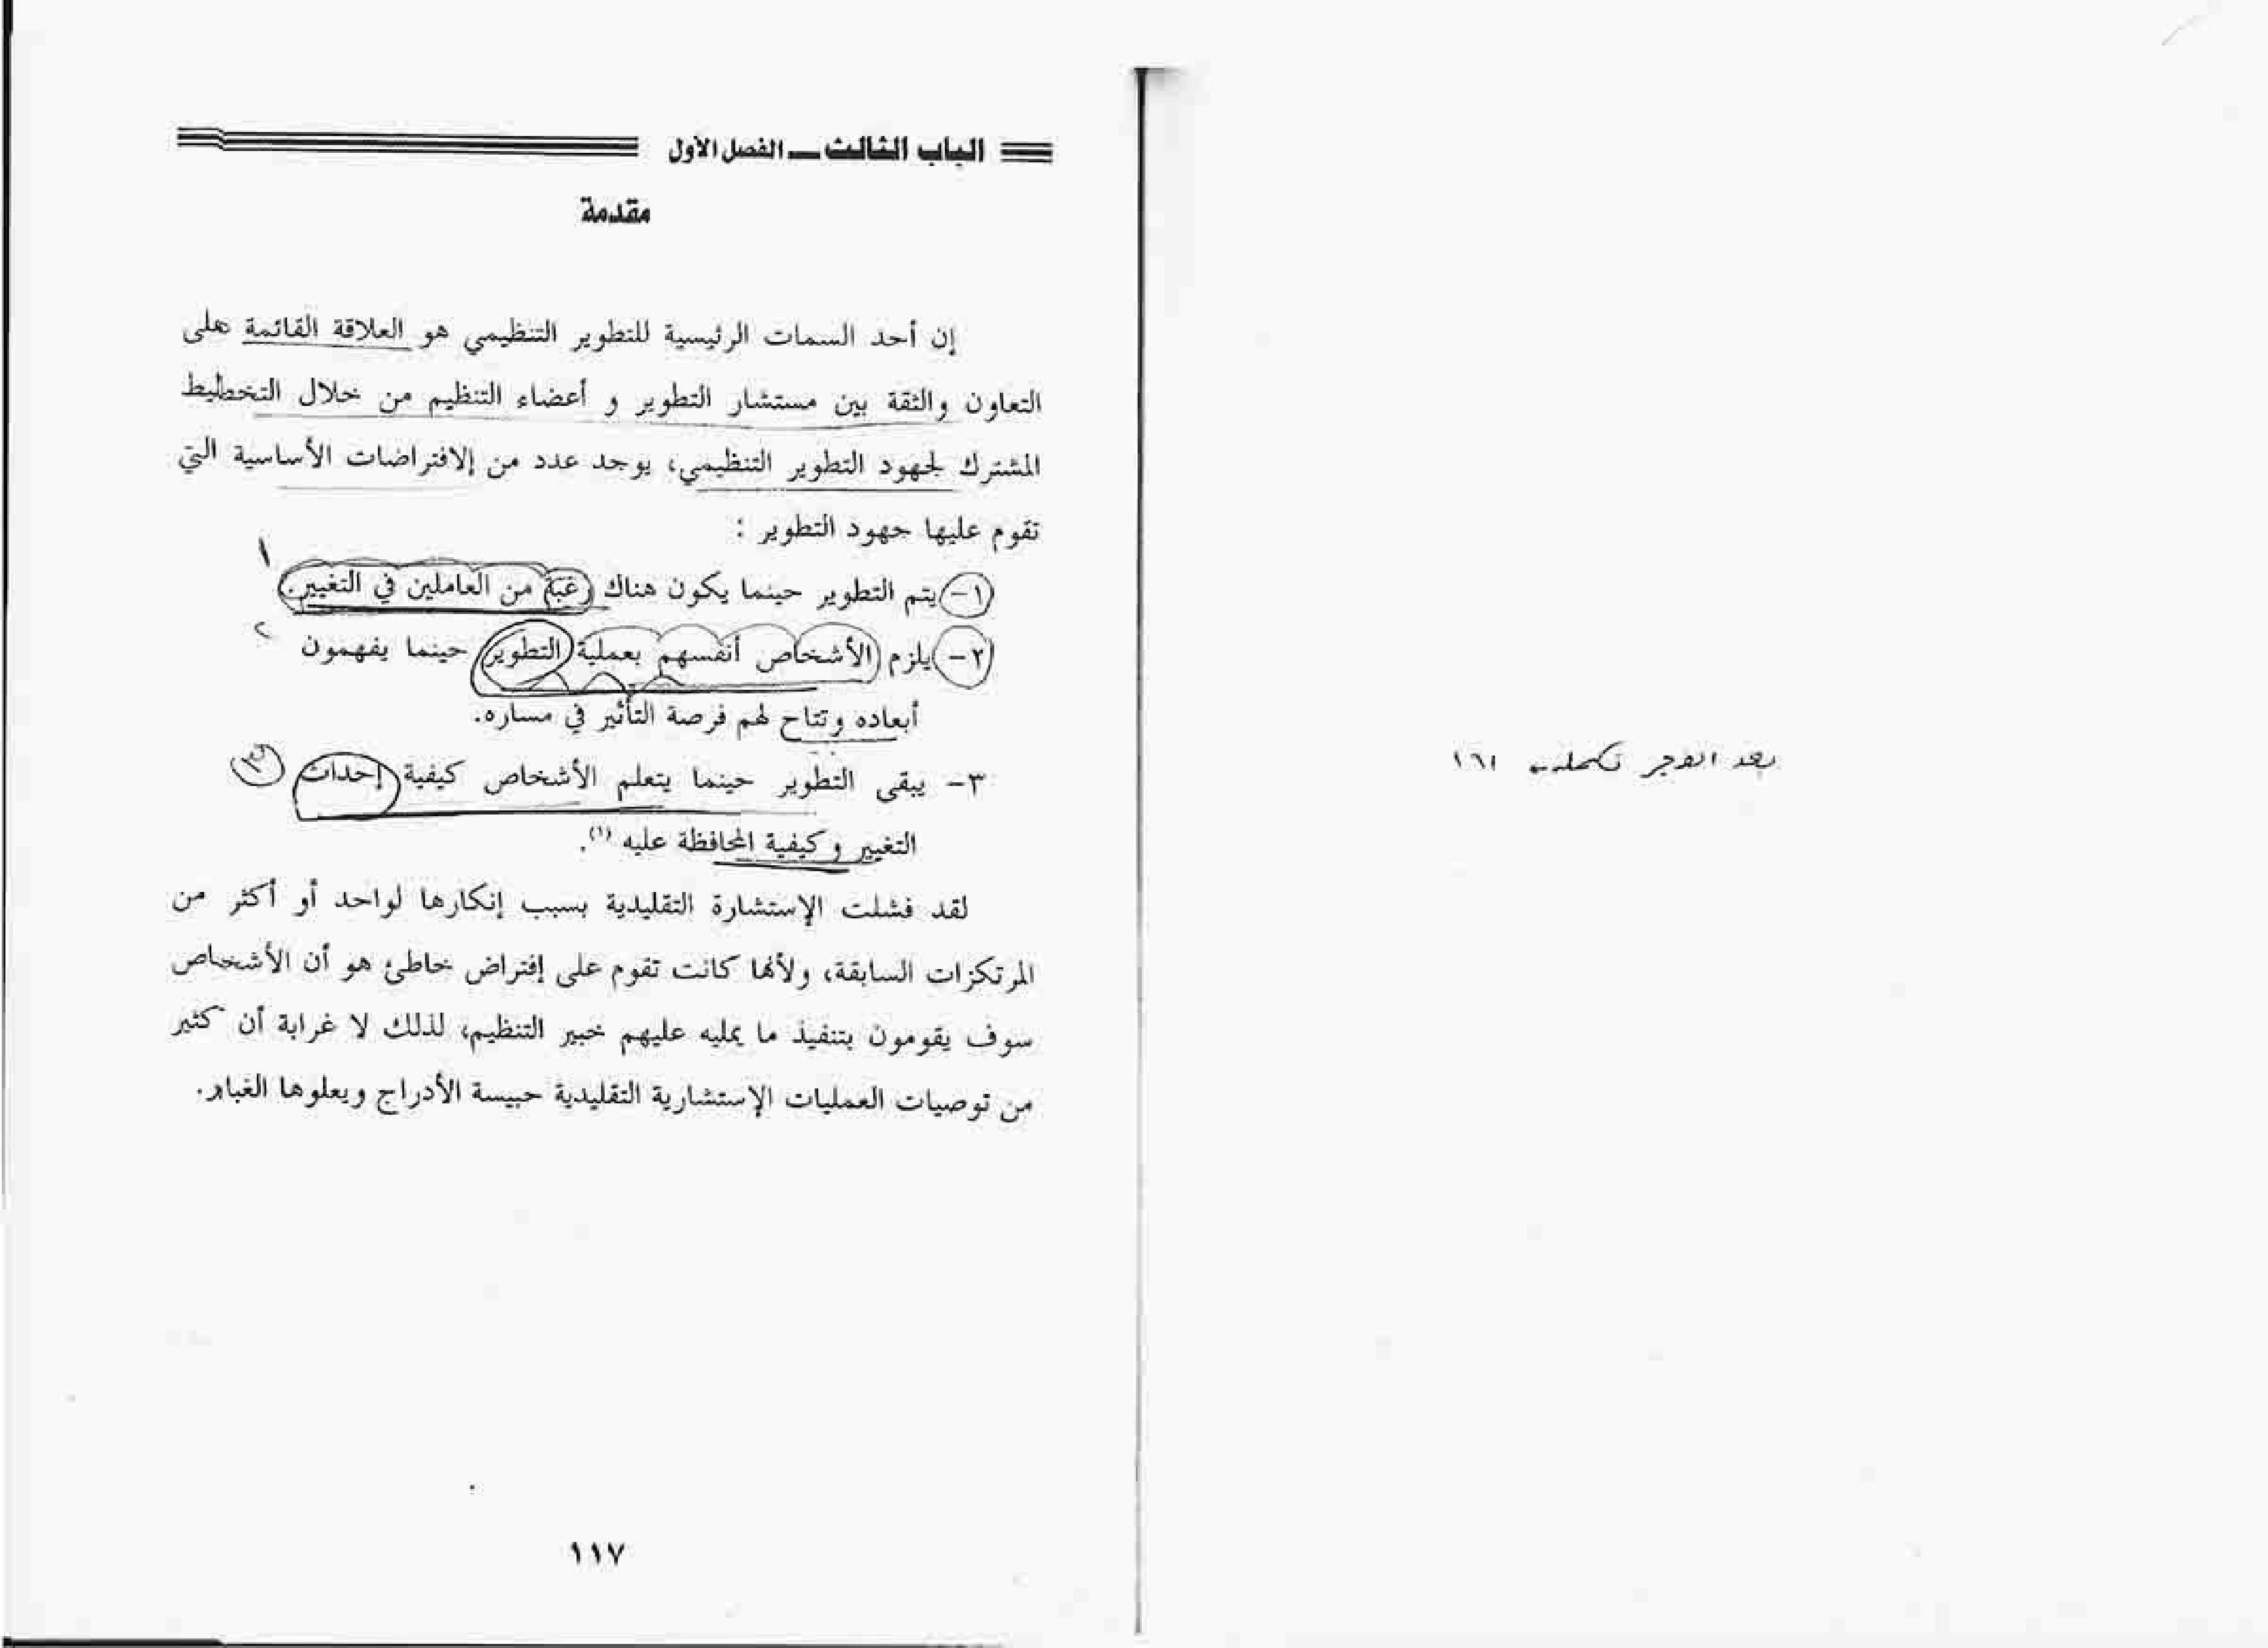 الباب الثالث ــ الفصل الأول
مقدمة
إن أحد السمات الرئيسية للتطوير التنظيمي هو العلاقة القائمة على
التعاون والثقة بين مستشار التطوير و أعضاء التنظيم من خلال التخطيط
المشترك لجهود التطوير التنظيمي، يوجد عدد من إلافتراضات الأساسية التي
تقوم عليها جهود التطوير :
١- يتم التطوير حينما يكون هناك رغبة من العاملين في التغيير. ١
٢- يلزم الأشخاص أنفسهم بعملية التطوير حينما يفهمون ٢
أبعاده وتتاح لهم فرصة التأثير في مساره.
٣- يبقى التطوير حينما يتعلم الأشخاص كيفية إحداث ٣
التغيير وكيفية المحافظة عليه (١).
لقد فشلت الإستشارة التقليدية بسبب إنكارها لواحد أو أكثر من
المرتكزات السابقة، ولأنها كانت تقوم على إفتراض خاطئ هو أن الأشخاص
سوف يقومون بتنفيذ ما يمليه عليهم خبير التنظيم، لذلك لا غرابة أن كثير
من توصيات العمليات الإستشارية التقليدية حبيسة الأدراج ويعلوها الغبار.
١١٧
بعد الفجر ١٦١